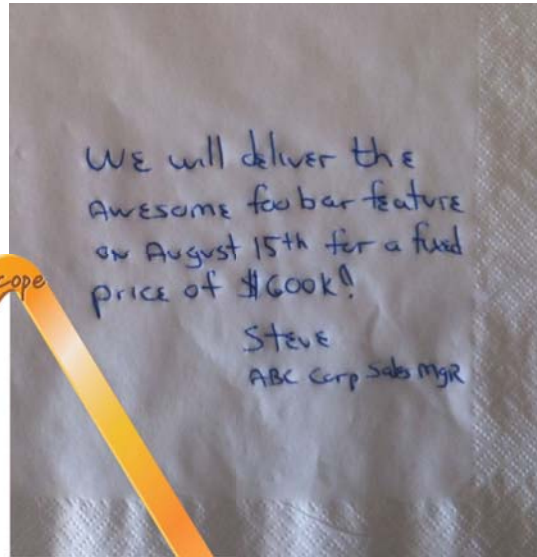 WE will deliver the
Awesome foobar feature
on August 15th for a fixed
price of $600k!
cope
Steve
ABC Corp Sales MgR